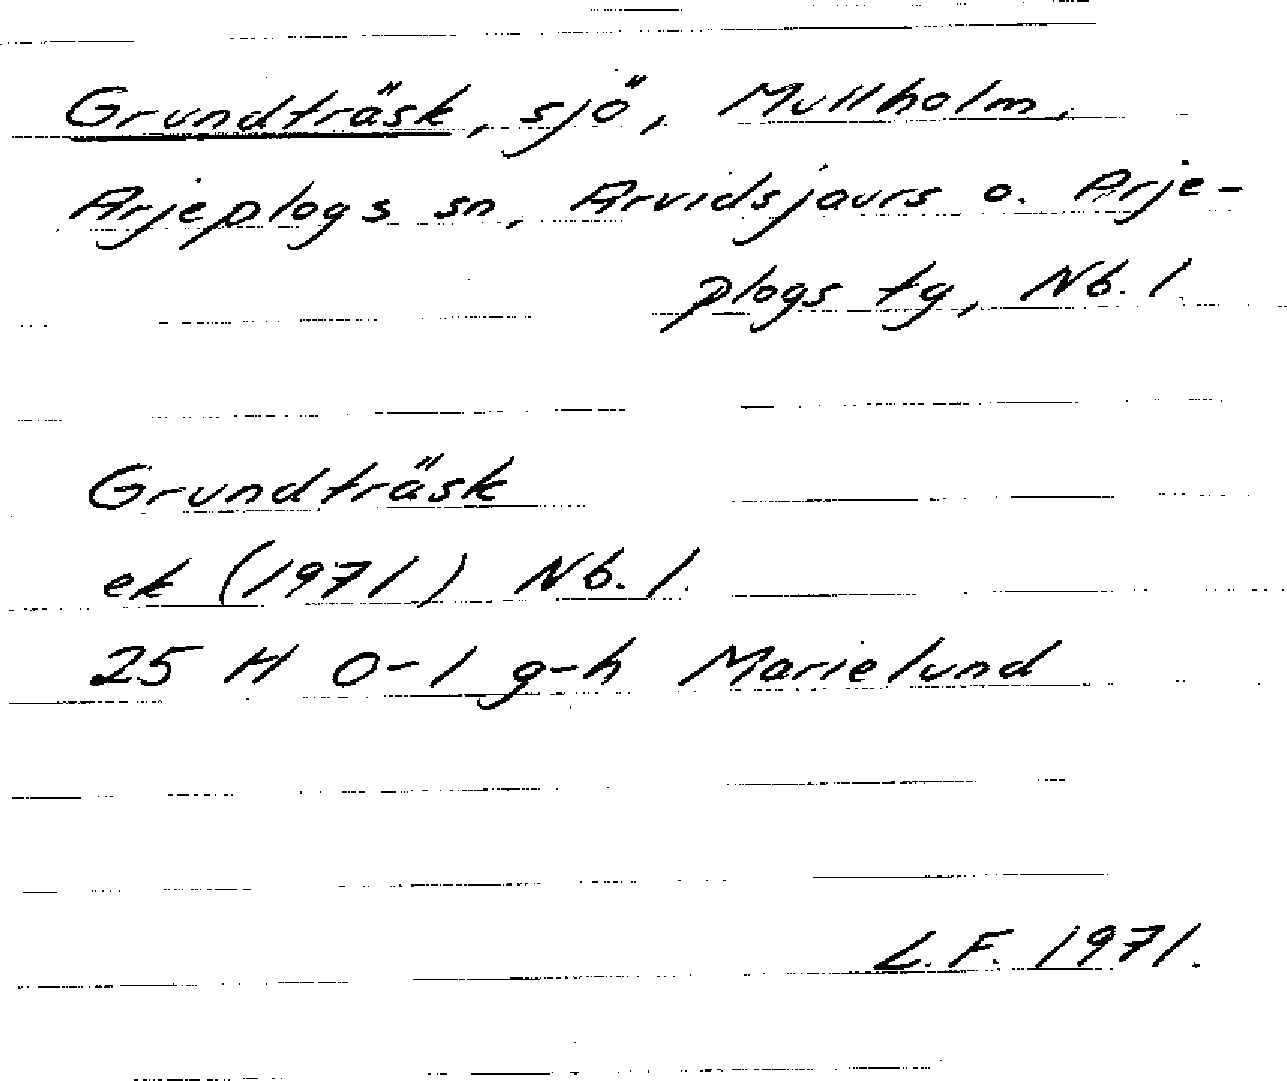 Grundträsk, sjö, Mullholm,
Arjeplogs sn, Arvidsjaurs o. Arje-
plogs tg, Nb. l
Grundträsk
ek (1971) Nb. l.
25 H 0-1 g-h Marielund
L.F. 1971.